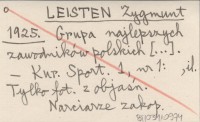 LEISTEN Zygmunt
1925. Grupa najlepszych
zawodników polskich [...].
— Kur. Sport. 1, nr 1: , il.
Tylko fot. z objaśn.
Narciarze zakop.